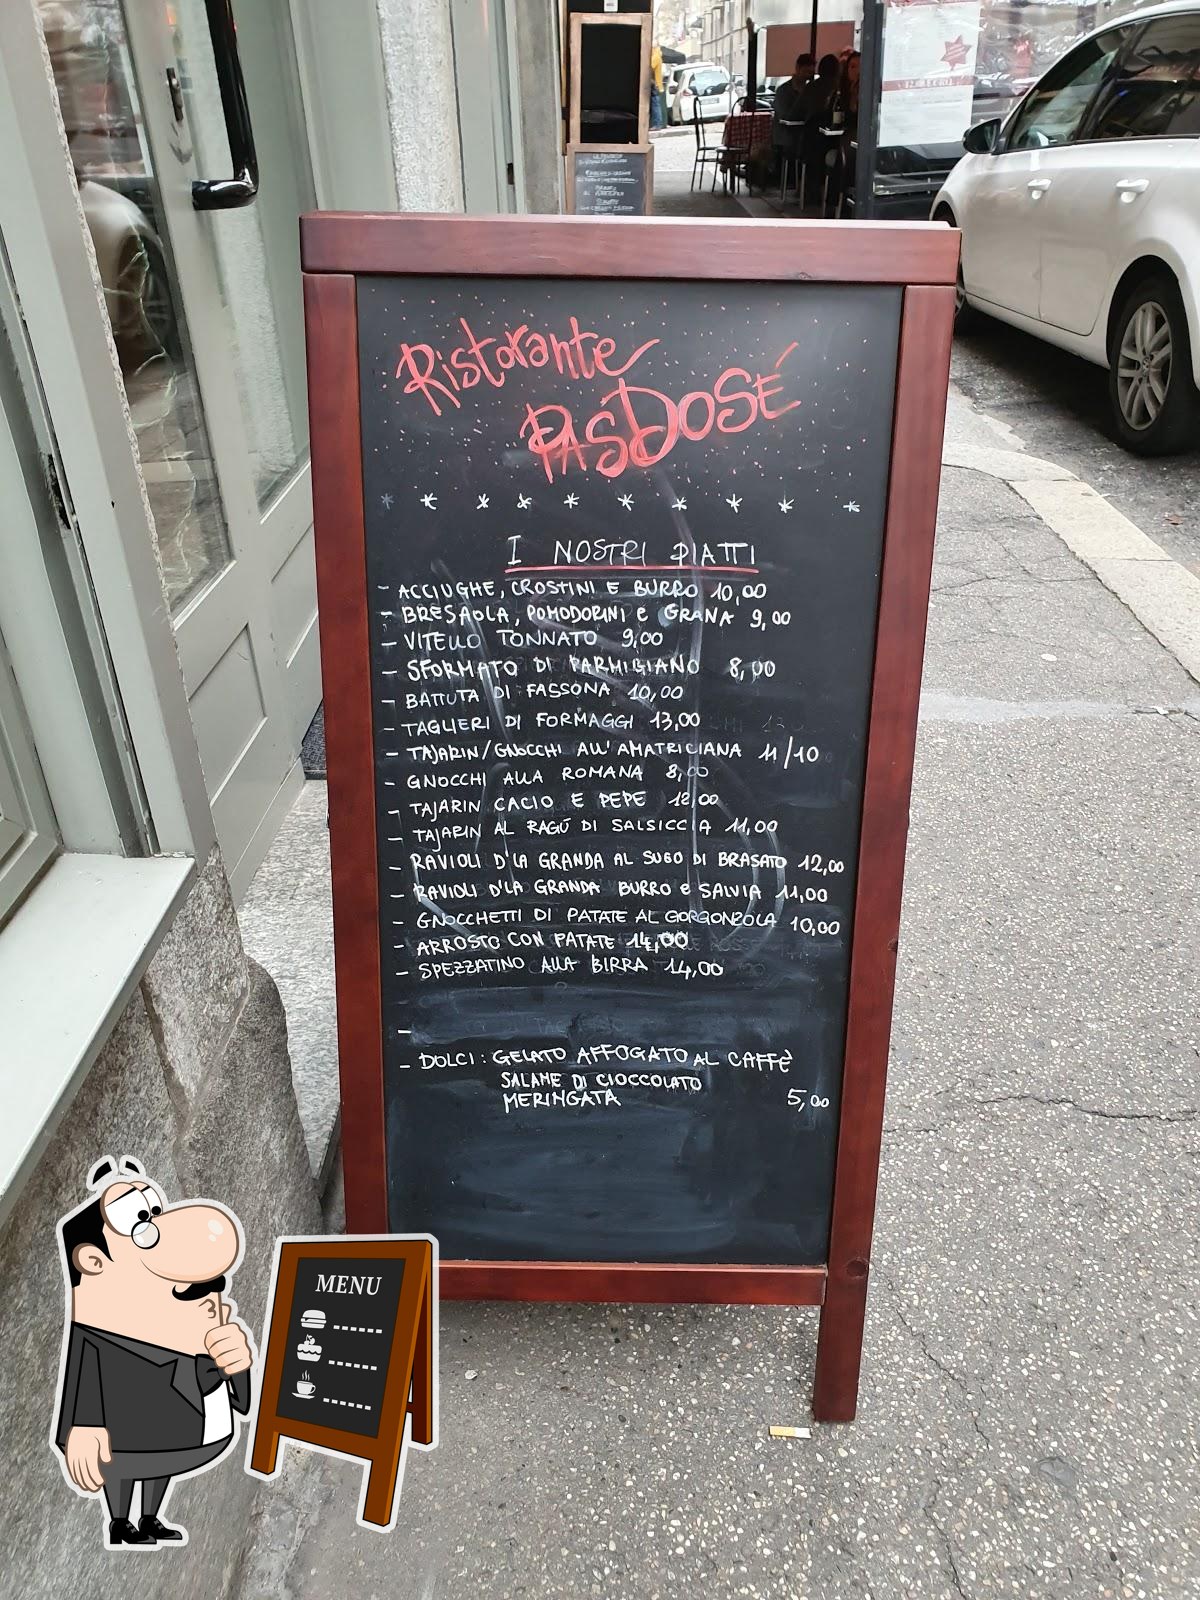 Ristorante
PASDOSÉ
* * * * * * * * * *
I NOSTRI PIATTI
- ACCIUGHE, CROSTINI E BURRO 10,00
- BRESAOLA, POMODORINI e GRANA 9,00
- VITELLO TONNATO 9,00
- SFORMATO DI PARMIGIANO 8,00
- BATTUTA DI FASSONA 10,00
- TAGLIERI DI FORMAGGI 13,00
- TAJARIN/GNOCCHI ALL'AMATRICIANA 11/10
- GNOCCHI ALLA ROMANA 8,00
- TAJARIN CACIO E PEPE 12,00
- TAJARIN AL RAGÚ DI SALSICCIA 11,00
- RAVIOLI D'LA GRANDA AL SUGO DI BRASATO 12,00
- RAVIOLI D'LA GRANDA BURRO e SALVIA 11,00
- GNOCCHETTI DI PATATE AL GORGONZOLA 10,00
- ARROSTO CON PATATE 14,00
- SPEZZATINO ALLA BIRRA 14,00
-
- DOLCI: GELATO AFFOGATO AL CAFFÈ
SALAME DI CIOCCOLATO
MERINGATA 5,00
MENU